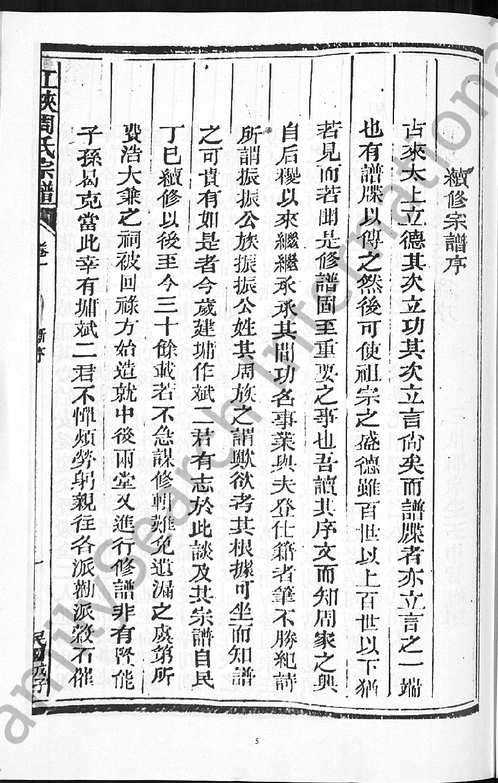 續修宗譜序
古來太上立德其次立功其次立言尚矣而譜牒者亦立言之一端
也有譜牒以傳之然後可使祖宗之盛德雖百世以上百世以下猶
若見而若聞是修譜固至重要之事也吾讀其序文而知周家之興
自后稷以來繼繼承承其間功名事業與夫登仕籍者筆不勝紀詩
所謂振振公族振振公姓其周族之謂歟欲考其根據可坐而知譜
之可貴有如是者今歲建墉作斌二君有志於此談及其宗譜自民
丁巳續修以後至今三十餘載若不急謀修輯難免遺漏之虞第所
費浩大兼之祠被回祿方始造就中後兩堂又進行修譜非有賢能
子孫曷克當此幸有墉斌二君不憚煩勞躬親往各派勸派穀石催
江陝周氏宗譜
卷一
新序
一
民國戊子
5
FamilySearch International